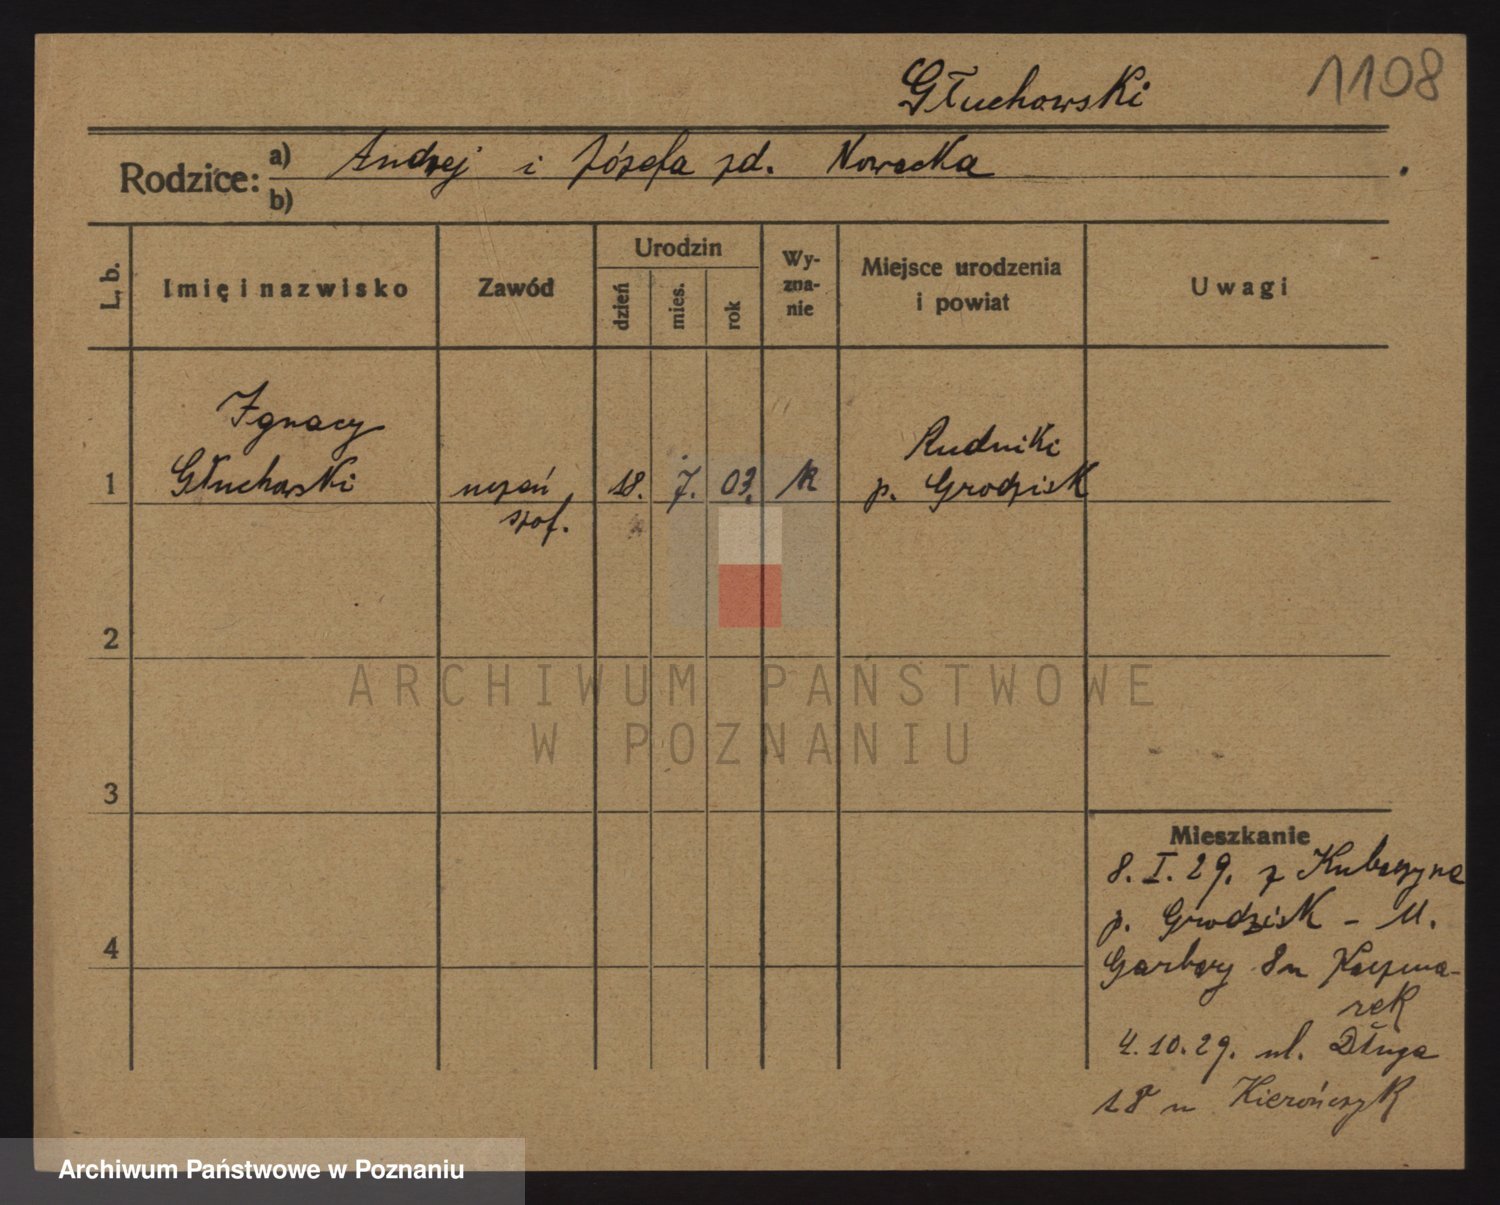 1108
Głuchowski
Rodzice:
a) Andrzej i Józefa zd. Nowacka
b)
L. b.
Imię i nazwisko
Zawód
Urodzin
dzień
mies.
rok
Wy-
zna-
nie
Miejsce urodzenia
i powiat
Uwagi
Ignacy
Rudniki
1 Głuchowski uczeń 18. 7. 03. k p. Grodzisk
szof.
2
3
4
Mieszkanie
8. I. 29. z Kubaczyna
p. Grodzisk - M.
Garbary 8 u Kaczma-
rek
4.10.29. ul. Długa
18 u Kierończyk
ARCHIWUM PAŃSTWOWE
W POZNANIU
Archiwum Państwowe w Poznaniu